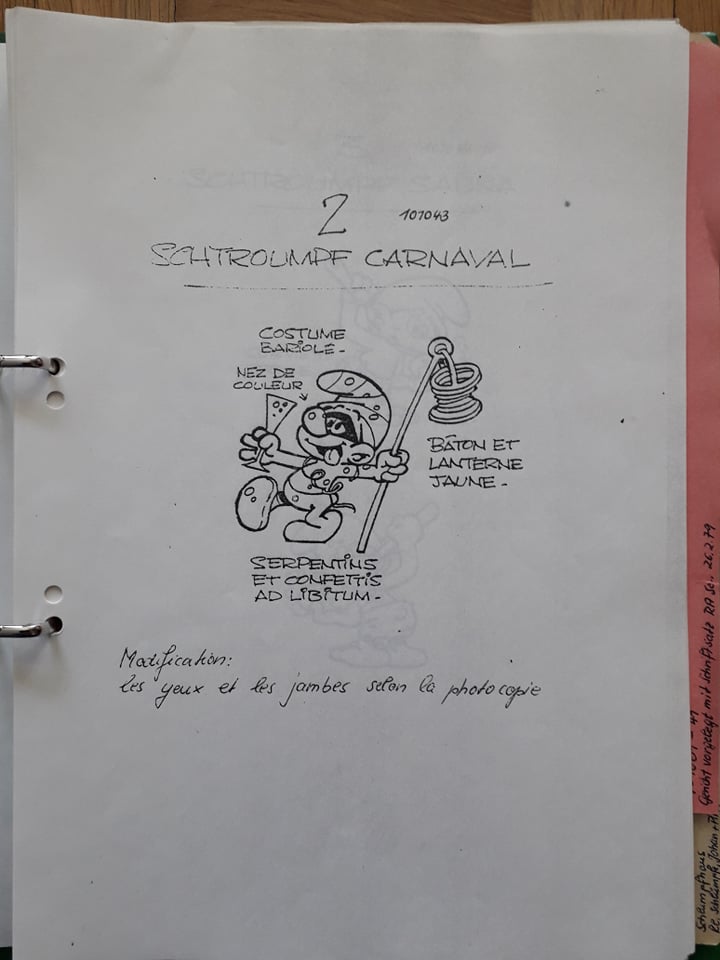 2 101043
SCHTROUMPF CARNAVAL
COSTUME
BARIOLE -
NEZ DE
COULEUR
BÂTON ET
LANTERNE
JAUNE -
SERPENTINS
ET CONFETTIS
AD LIBITUM -
Modification:
les yeux et les jambes selon la photocopie
Gericht vorgelegt mit Schriftsatz RA Sc. 26.2.79
Schlumpfhaus